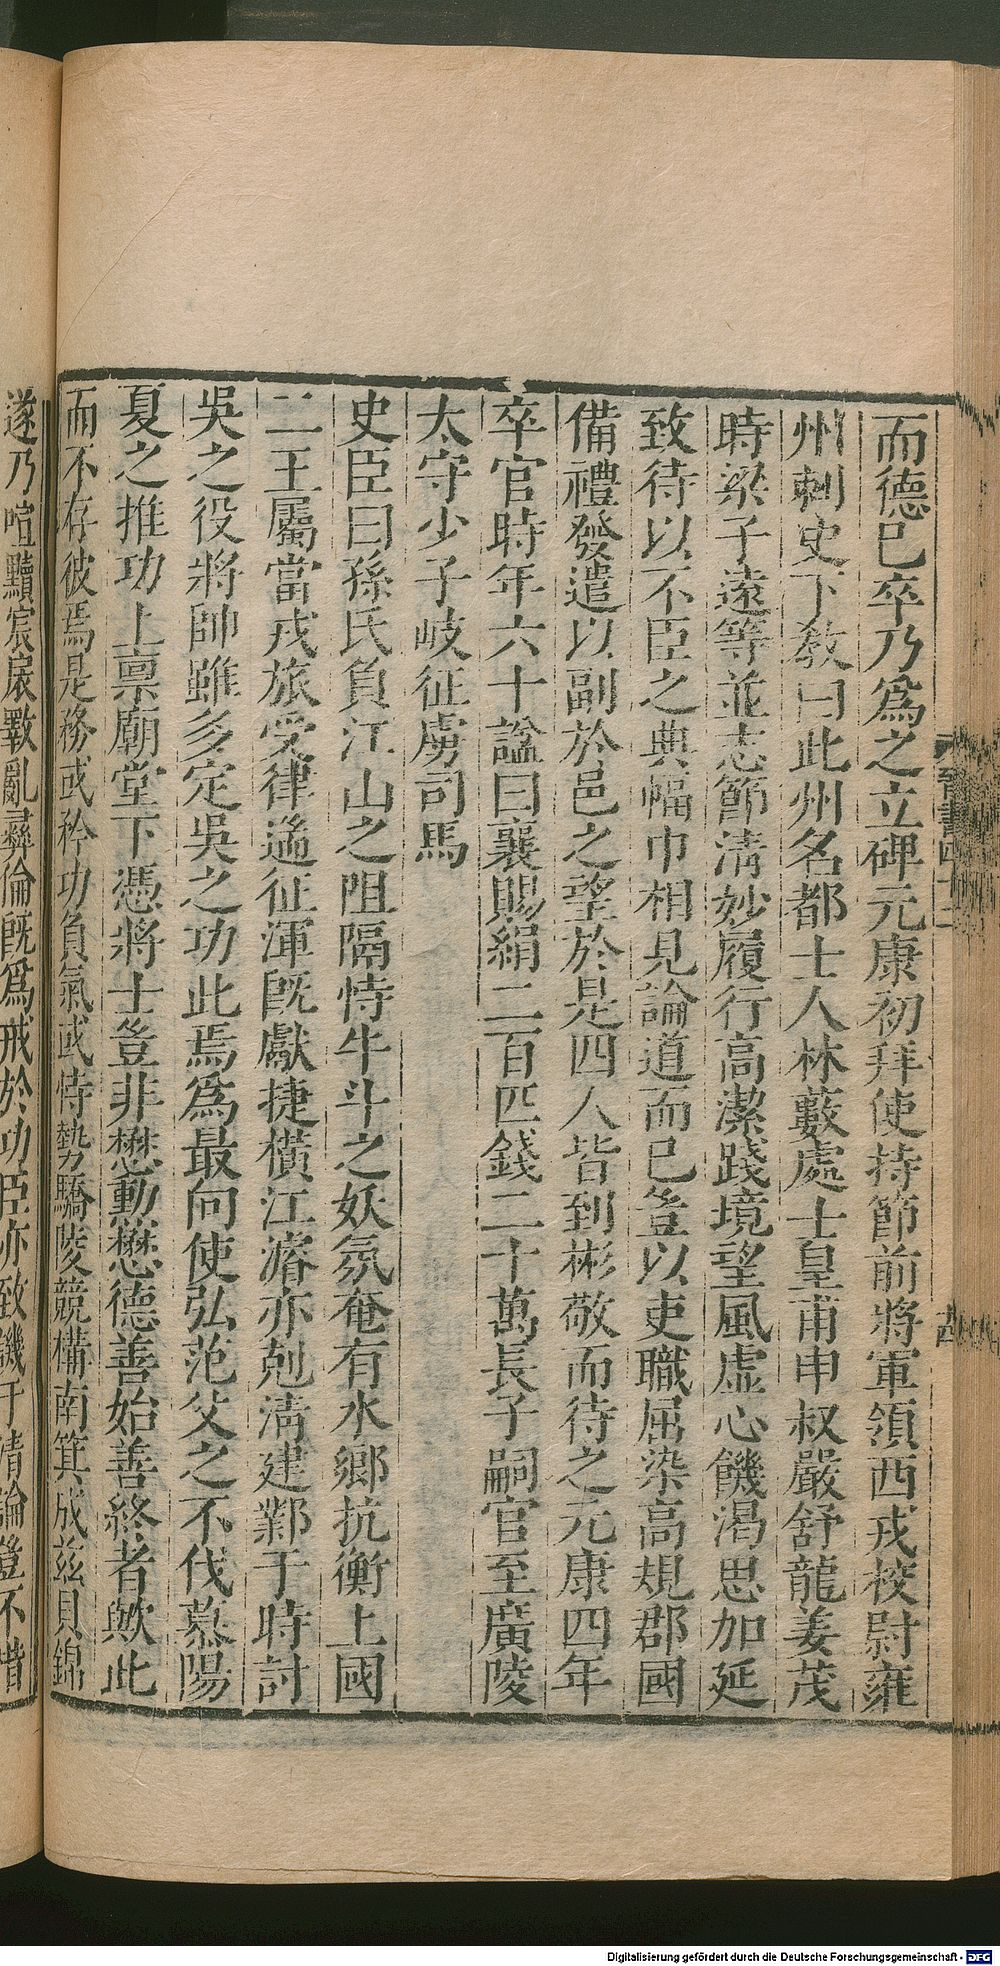 而德已卒乃爲之立碑元康初拜使持節前將軍領西戎校尉雍
州刺史下敎曰此州名都士人林藪處士皇甫申叔嚴舒龍姜茂
時梁子遠等並志節清妙履行高潔踐境望風虛心饑渴思加延
致待以不臣之典幅巾相見論道而已豈以吏職屈染高規郡國
備禮發遣以副於邑之望於是四人皆到彬敬而待之元康四年
卒官時年六十謚曰襄賜絹二百匹錢二十萬長子嗣官至廣陵
太守少子岐征虜司馬
史臣曰孫氏負江山之阻隔恃牛斗之妖氛奄有水鄉抗衡上國
二王屬當戎旅受律遄征渾旣獻捷橫江濬亦剋清建鄴于時討
吳之役將帥雖多定吳之功此焉爲最向使弘范父之不伐慕陽
夏之推功上禀廟堂下憑將士豈非懋勳懋德善始善終者歟此
而不存彼焉是務或矜功負氣或恃勢驕陵競構南箕成茲貝錦
遂乃喧黷宸扆斁亂彛倫旣爲戒於功臣亦致譏于清論豈不惜
晉書四十二
十四
Digitalisierung gefördert durch die Deutsche Forschungsgemeinschaft - DFG